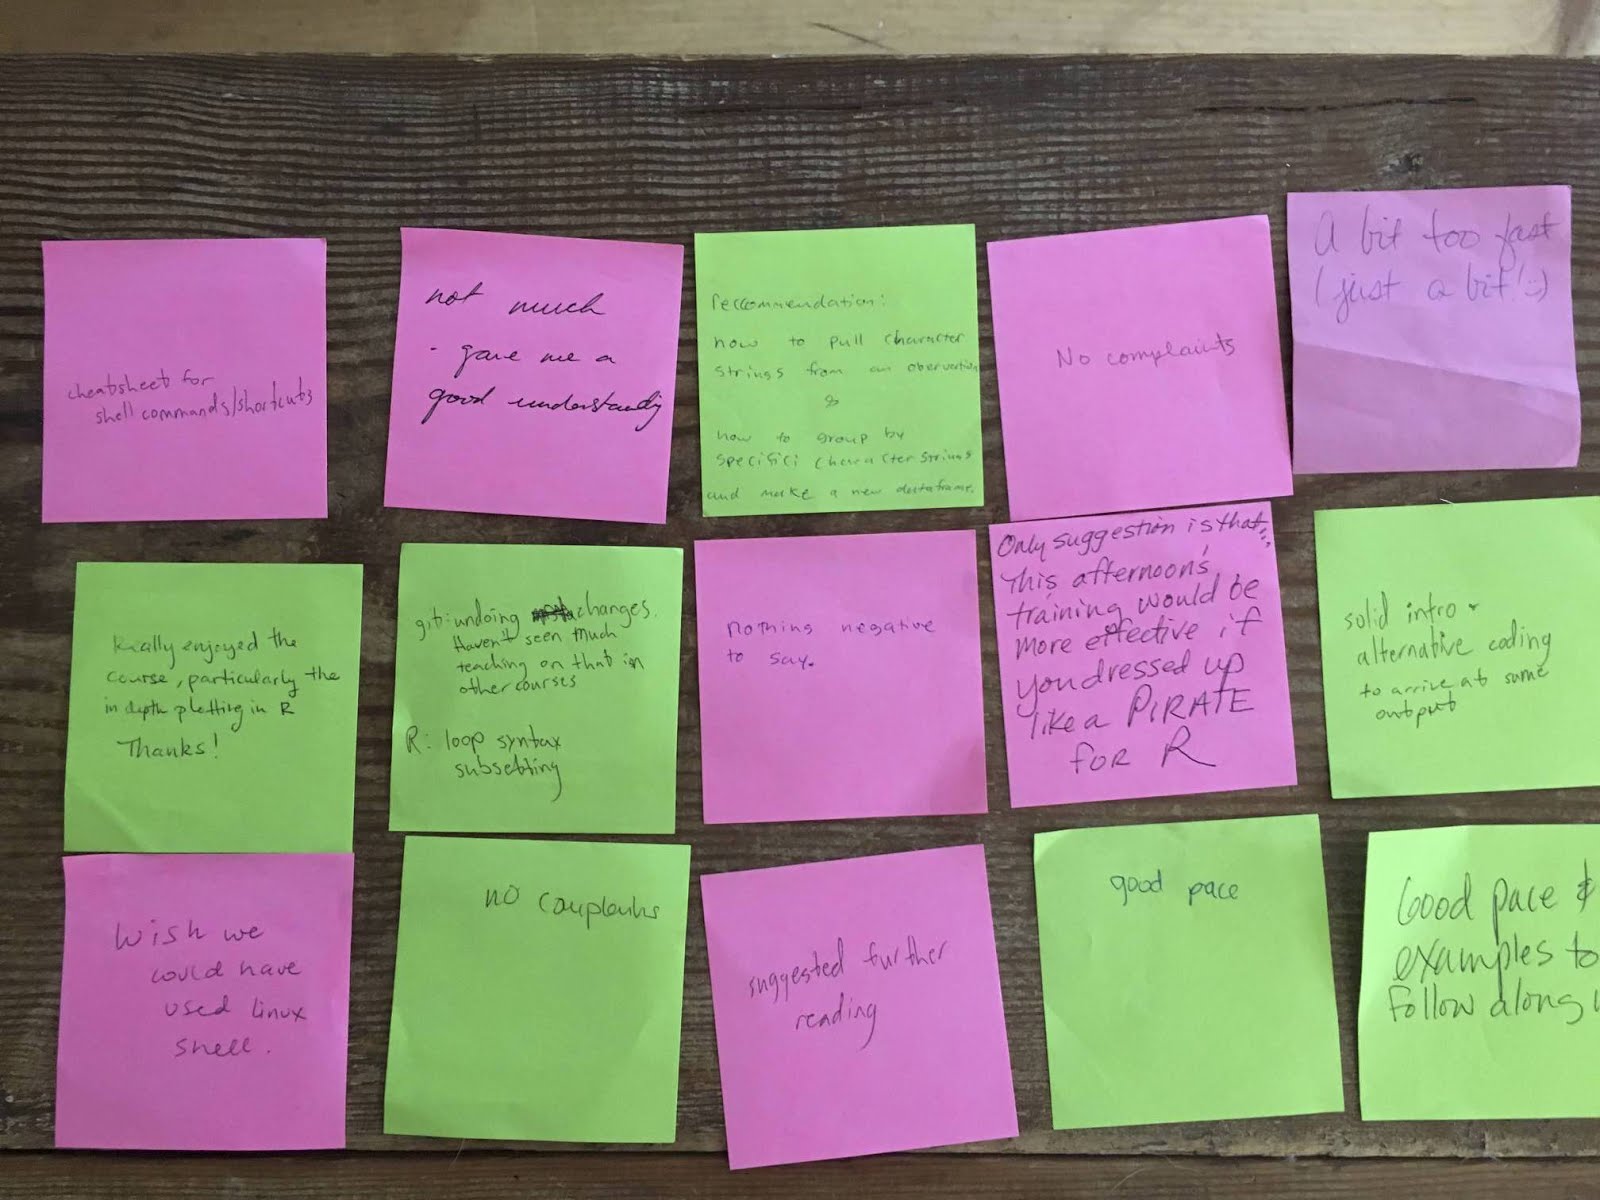 cheatsheet for
shell commands/shortcuts
not much
- gave me a
good understandig
reccommendation:
how to pull character
strings from an obervation
&
how to group by
specifici character strings
and make a new dataframe.
No complaints
A bit too fast
(just a bit! :)
Really enjoyed the
course, particularly the
in depth plotting in R
Thanks!
git: undoing changes.
Haven't seen much
teaching on that in
other courses
R: loop syntax
subsetting
nothing negative
to say.
Only suggestion is that...
This afternoon's
training would be
more effective if
you dressed up
like a PIRATE
for R
solid intro
alternative coding
to arrive at same
output
Wish we
could have
used linux
shell.
no complaints
suggested further
reading
good pace
Good pace &
examples to
follow along